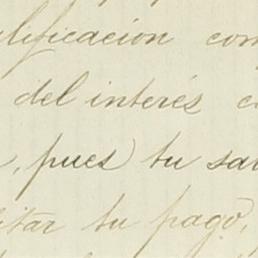 lificación com
del interés c
, pues tu sal
itar tu pago,